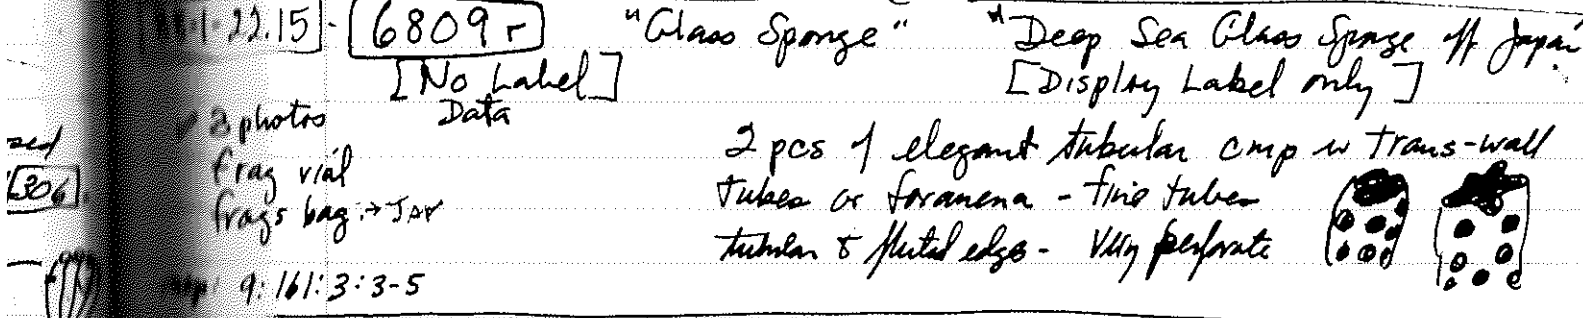 22.15] - [6809r] "Glass Sponge" "Deep Sea Glass Sponge off Japan
[No Label] [Display Label only]
Data
2 photos
frag vial
frags bag → JAR
2 pcs of elegant tubular cmp w trans-wall
tubes or foramena - fine tubes
tubular & fluted edge - Very perforate
306
9:161:3:3-5